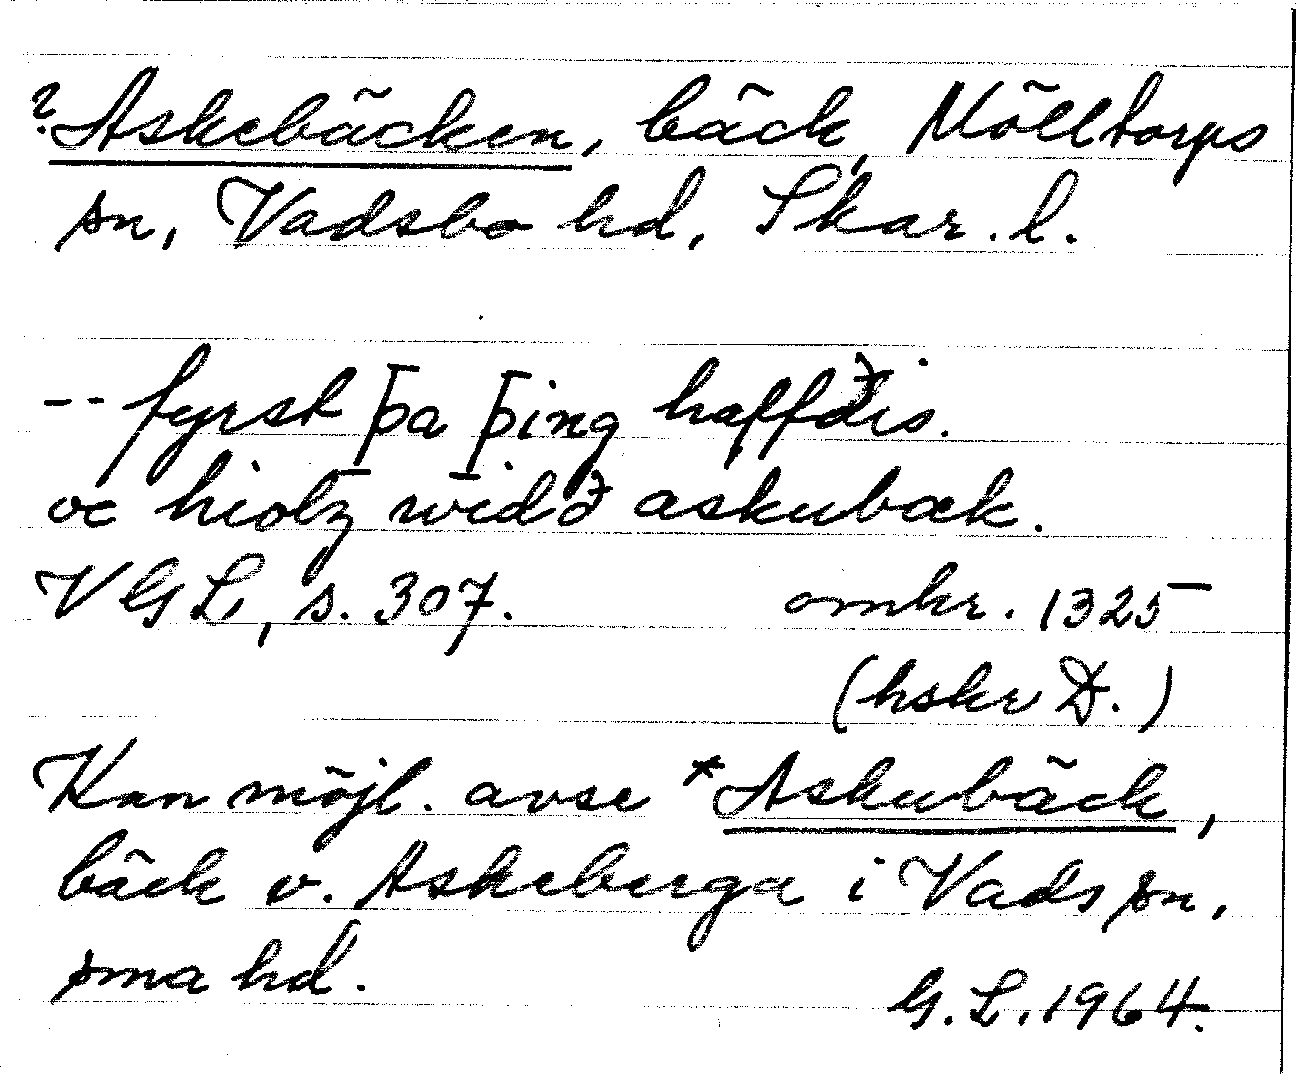 ? Askebäcken, bäck, Mölltorps
sn, Vadsbo hd, Skar. l.
-- fyrst þa þing haffðis.
oc hiolz widð askubæk.
VGL, s. 307. omkr. 1325
(hskr D.)
Kan möjl. avse *Askubäck,
bäck v. Askeberga i Vads sn,
sma hd.
G. L. 1964.